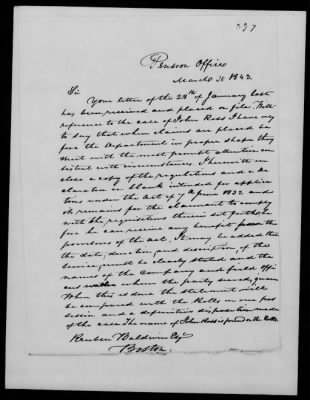 297
Pension Office
March 20 1843.
Sir
Your letter of the 28th of January last
has been received and placed on file. With
reference to the case of John Ross I have only
to say that when claims are placed be
fore the Department in proper shape they
meet with the most prompt attention con
sistent with circumstances. I herewith in
close a copy of the regulations and a de
claration in blank intended for applica
tions under the Act of 7 April 1832 and
it remains for the claimant to comply
with the requisitions therein set forth be
fore he can receive any benefit from the
provisions of the act. It may be added that
the date, duration, and description, of the
service must be clearly stated and the
names of the Company and field Offi
cers under whom the party served, given
When this is done the statement will
be compared with the Rolls in our pos
session and a definitive disposition made
of the case. The name of John Ross is found on the Rolls.
Reuben Baldwin Esqr
Boston.